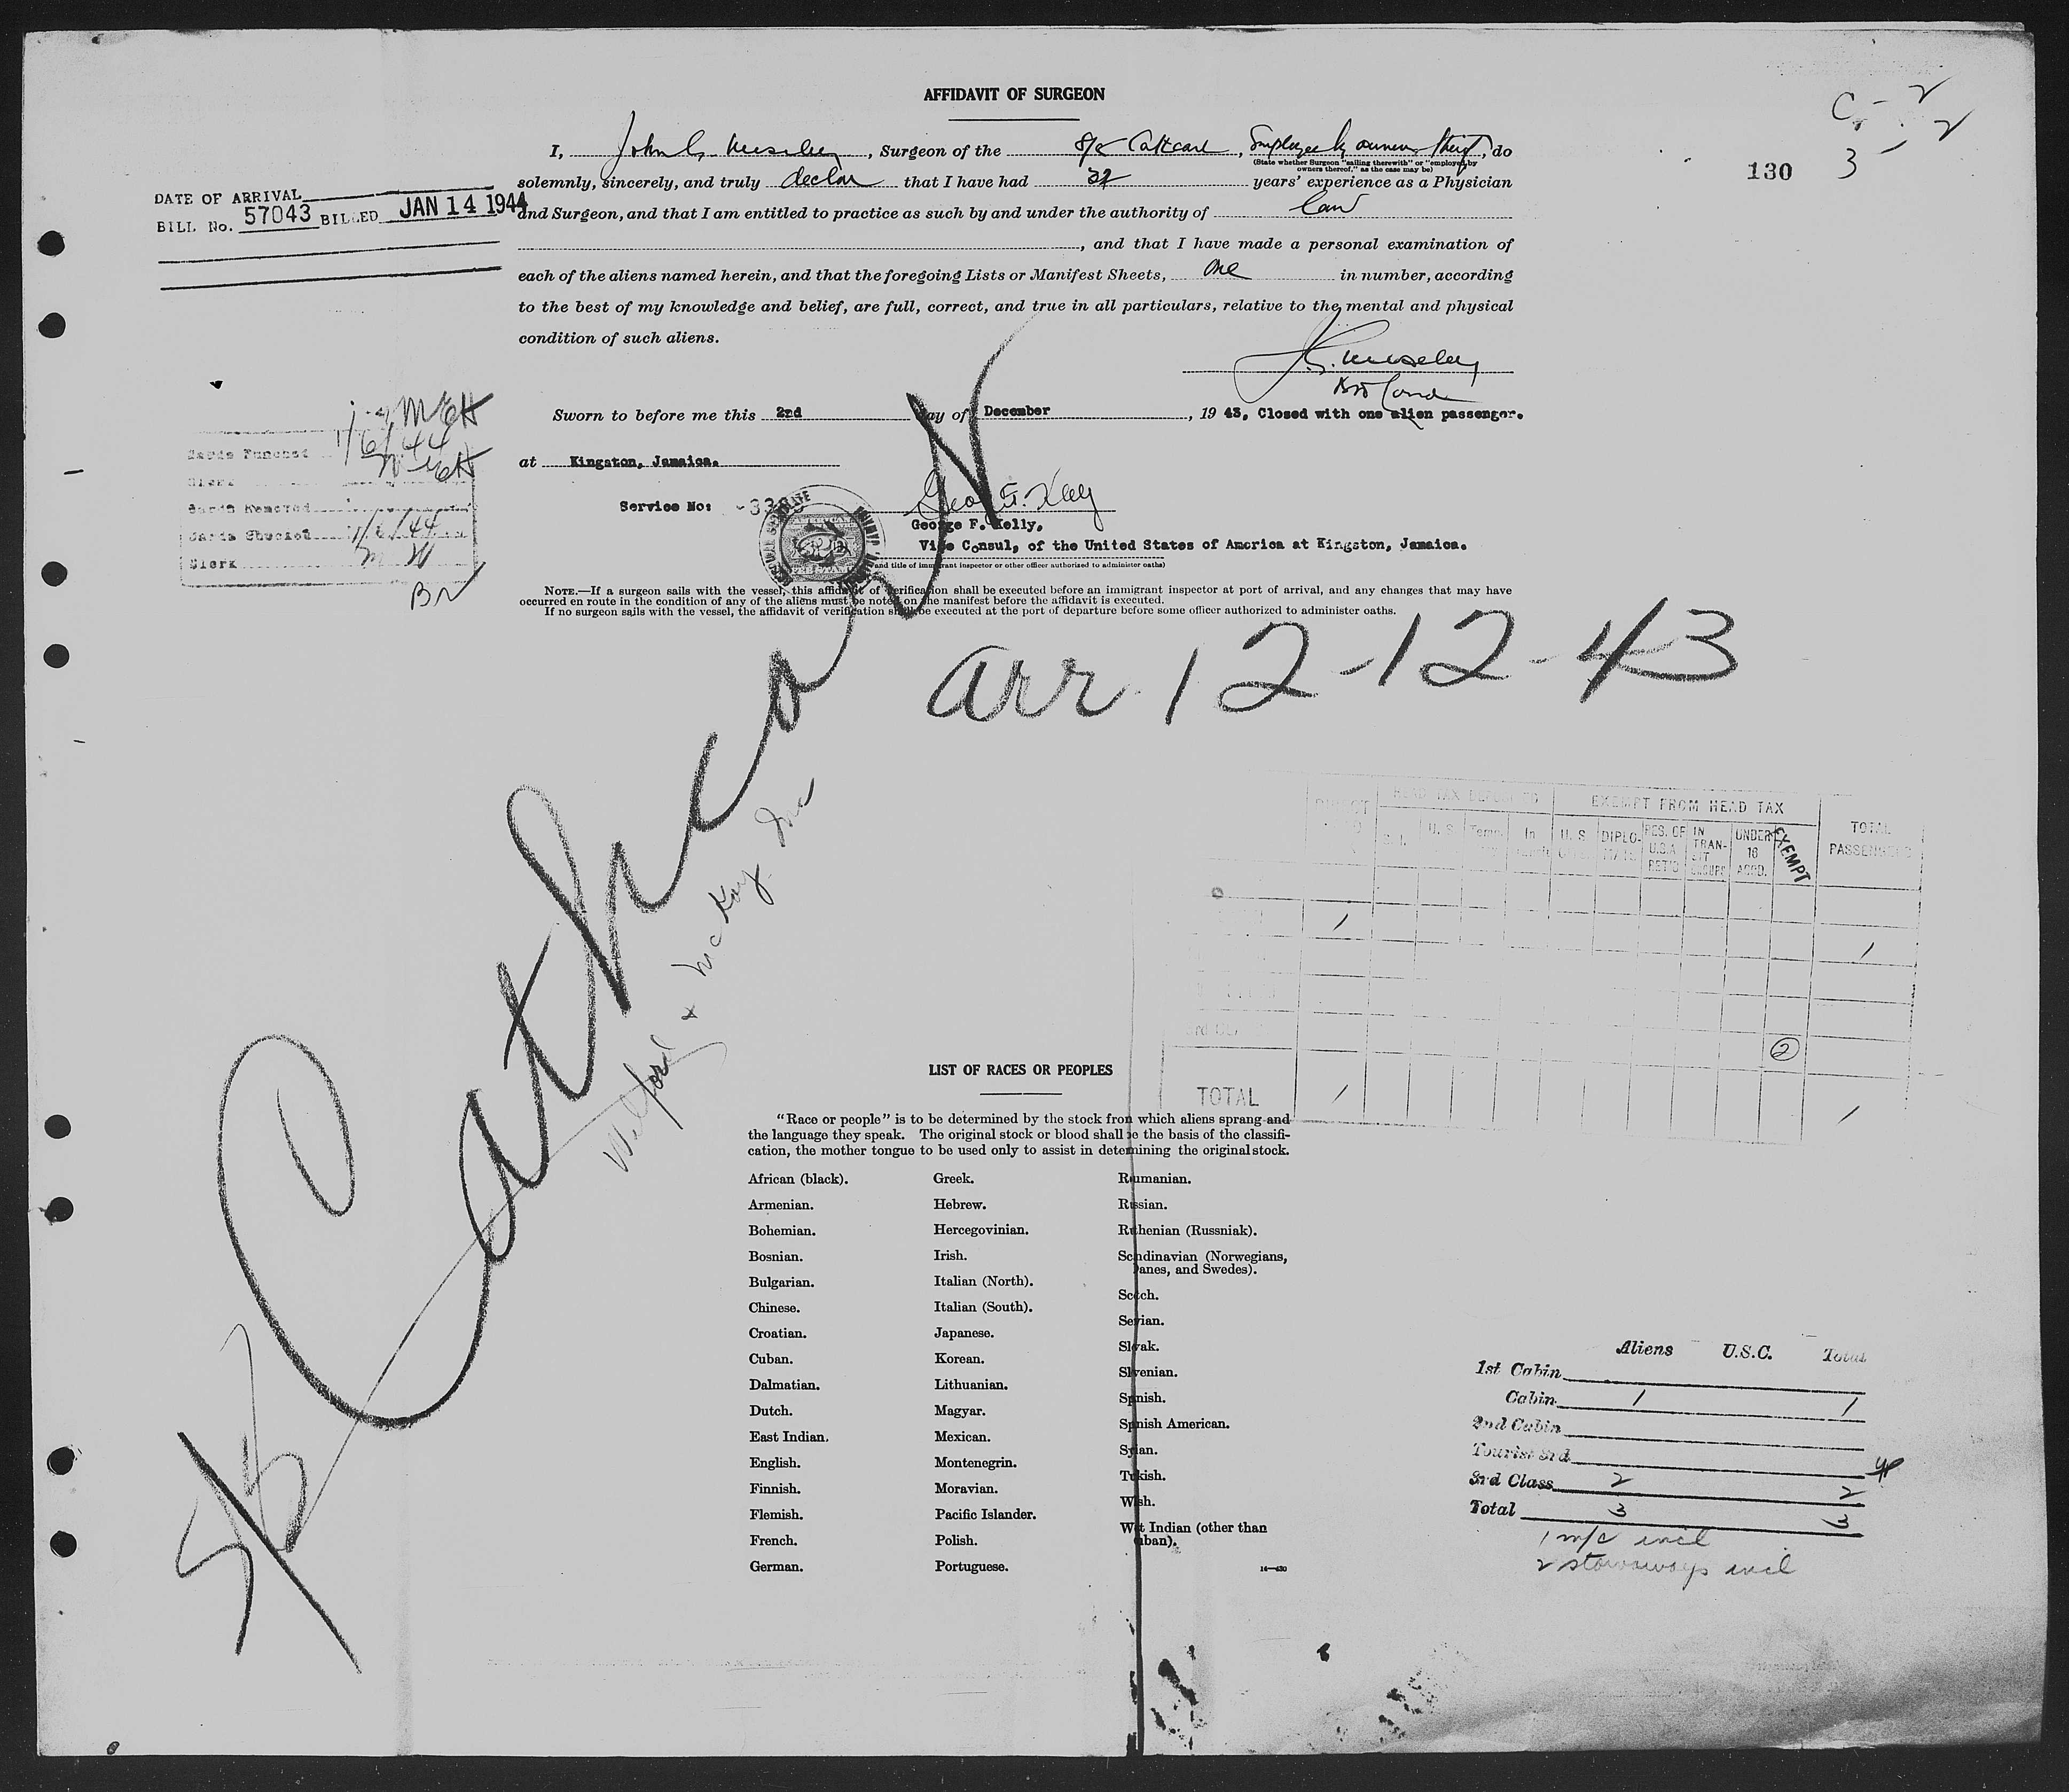 AFFIDAVIT OF SURGEON
C - 2
2
130 3
I, John G. , Surgeon of the S/S Cathcart, Employed by owners thereof, do
(State whether Surgeon "sailing therewith" or "employed by
owners thereof," as the case may be)
solemnly, sincerely, and truly declare that I have had 32 years' experience as a Physician
DATE OF ARRIVAL
BILL No. 57043 BILLED JAN 14 1944
and Surgeon, and that I am entitled to practice as such by and under the authority of law
, and that I have made a personal examination of
each of the aliens named herein, and that the foregoing Lists or Manifest Sheets, One in number, according
to the best of my knowledge and belief, are full, correct, and true in all particulars, relative to the mental and physical
condition of such aliens.
Sworn to before me this 2nd day of December, 19 43, Closed with one alien passenger.
at Kingston, Jamaica.
Cards Punched 1/6/44
Clerk
Cards Removed
Cards Checked 1/6/44
Clerk
Service No:
George F. Kelly,
Vice Consul, of the United States of America at Kingston, Jamaica.
and title of immigrant inspector or other officer authorized to administer oaths)
NOTE.—If a surgeon sails with the vessel, this affidavit of verification shall be executed before an immigrant inspector at port of arrival, and any changes that may have
occurred en route in the condition of any of the aliens must be noted on the manifest before the affidavit is executed.
If no surgeon sails with the vessel, the affidavit of verification shall be executed at the port of departure before some officer authorized to administer oaths.
arr 12-12-43
S/S Cathcart
Wilford & McKay Inc
HEAD TAX EXEMPT FROM HEAD TAX TOTAL PASSENGERS
U. S. DIPLO- RES. OF U.S.A. RET'D IN TRAN- SIT UNDER 16 ACCD. EXEMPT
1 1
2
TOTAL 1 1
LIST OF RACES OR PEOPLES
"Race or people" is to be determined by the stock from which aliens sprang and
the language they speak. The original stock or blood shall be the basis of the classifi-
cation, the mother tongue to be used only to assist in determining the original stock.
African (black). Greek. Rumanian.
Armenian. Hebrew. Russian.
Bohemian. Hercegovinian. Ruthenian (Russniak).
Bosnian. Irish. Scandinavian (Norwegians,
Danes, and Swedes).
Bulgarian. Italian (North).
Chinese. Italian (South). Scotch.
Croatian. Japanese. Servian.
Cuban. Korean. Slovak.
Dalmatian. Lithuanian. Slovenian.
Dutch. Magyar. Spanish.
East Indian. Mexican. Spanish American.
English. Montenegrin. Syrian.
Finnish. Moravian. Turkish.
Flemish. Pacific Islander. Welsh.
French. Polish. West Indian (other than
Cuban).
German. Portuguese.
16—430
Aliens U.S.C. Total
1st Cabin
Cabin 1 1
2nd Cabin
Tourist 3rd
3rd Class 2 2
Total 3 3
1 m/c incl
2 stowaways incl